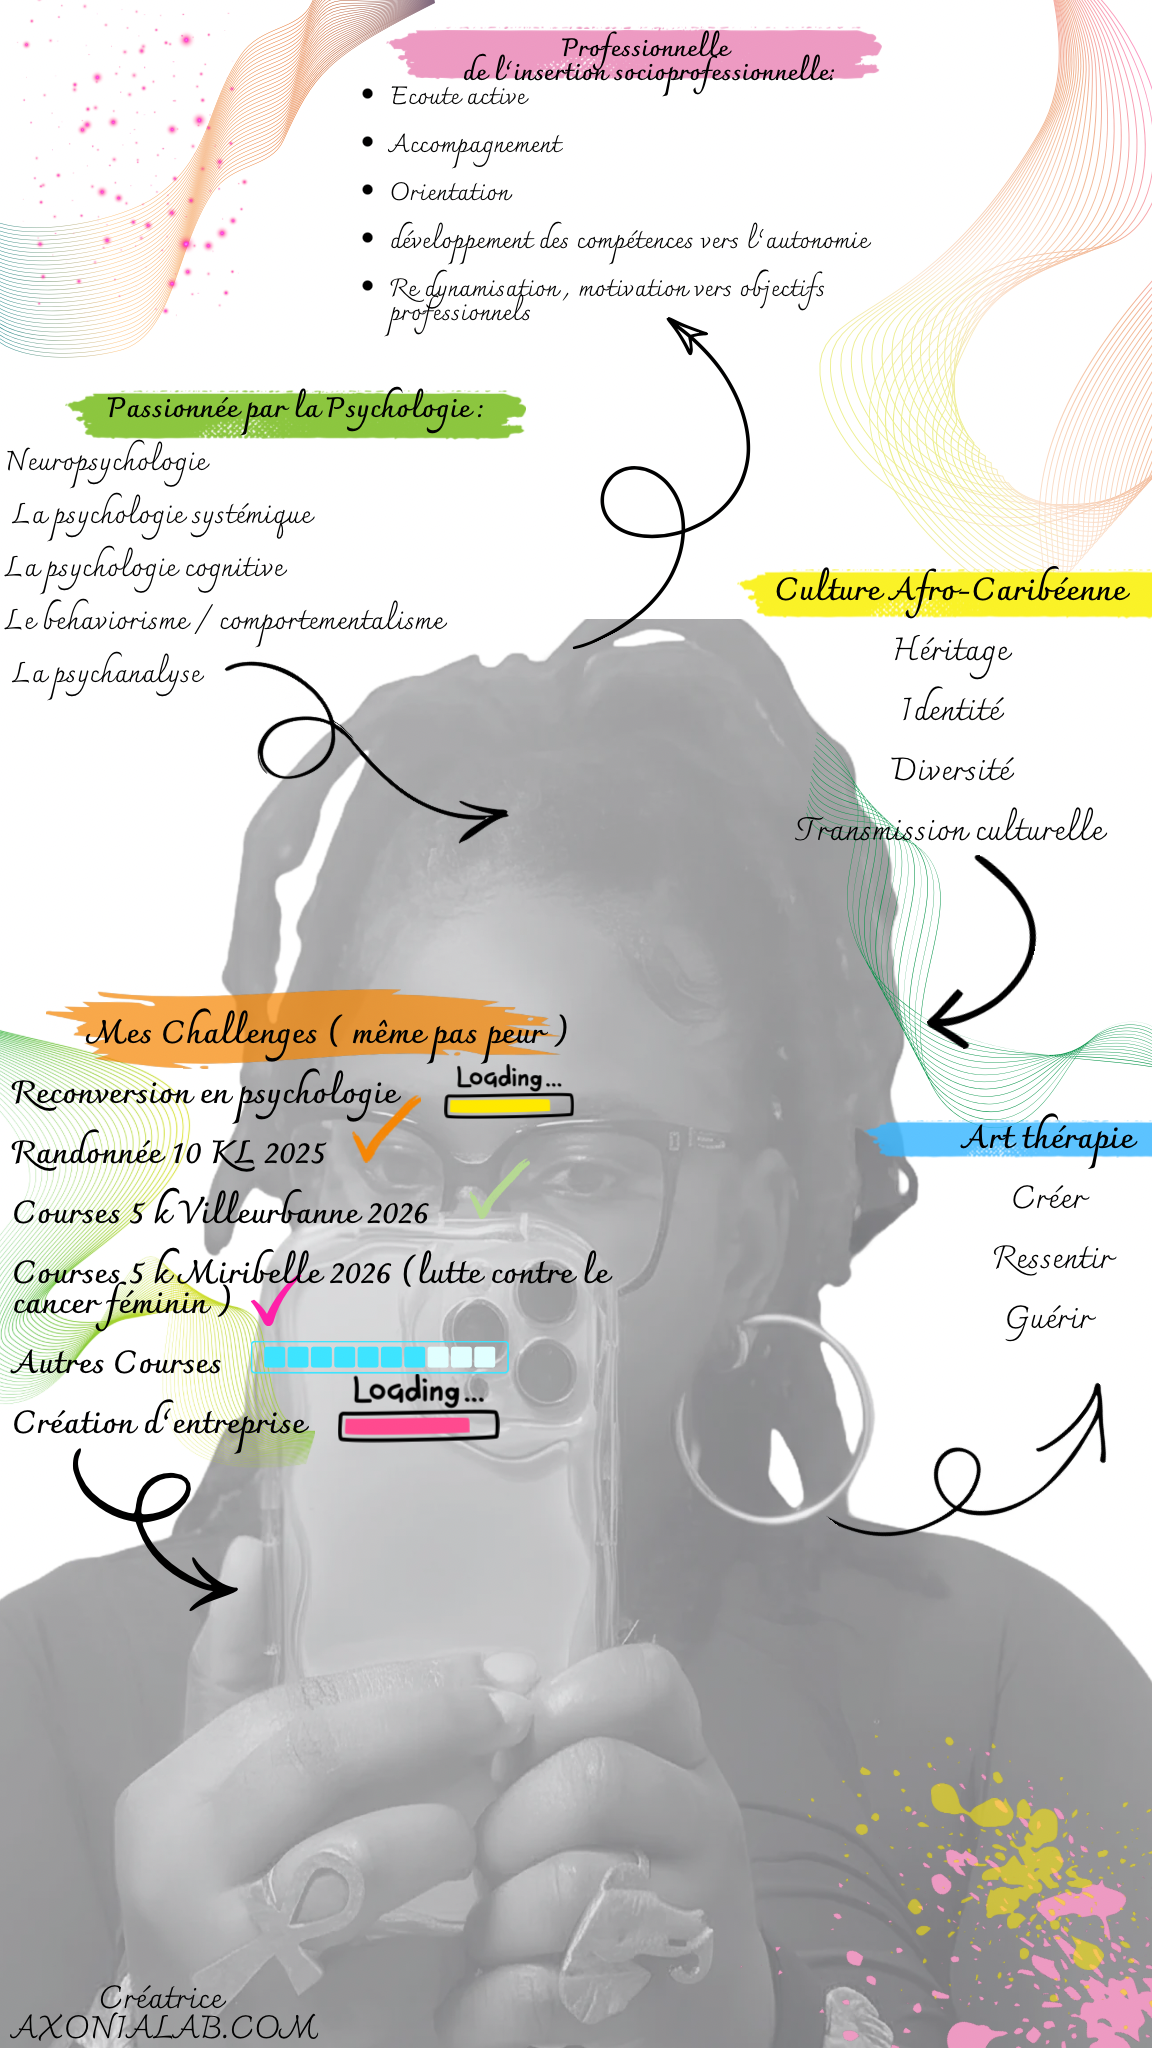 Professionnelle
de l'insertion socioprofessionnelle:
Ecoute active
Accompagnement
Orientation
développement des compétences vers l'autonomie
Re dynamisation, motivation vers objectifs
professionnels
Passionnée par la Psychologie :
Neuropsychologie
La psychologie systémique
La psychologie cognitive
Le behaviorisme / comportementalisme
La psychanalyse
Culture Afro-Caribéenne
Héritage
Identité
Diversité
Transmission culturelle
Mes Challenges ( même pas peur )
Reconversion en psychologie
Loading...
Randonnée 10 KL 2025
Courses 5 k Villeurbanne 2026
Courses 5 k Miribelle 2026 (lutte contre le
cancer féminin )
Autres Courses
Loading...
Création d'entreprise
Art thérapie
Créer
Ressentir
Guérir
Créatrice
AXONIALAB.COM